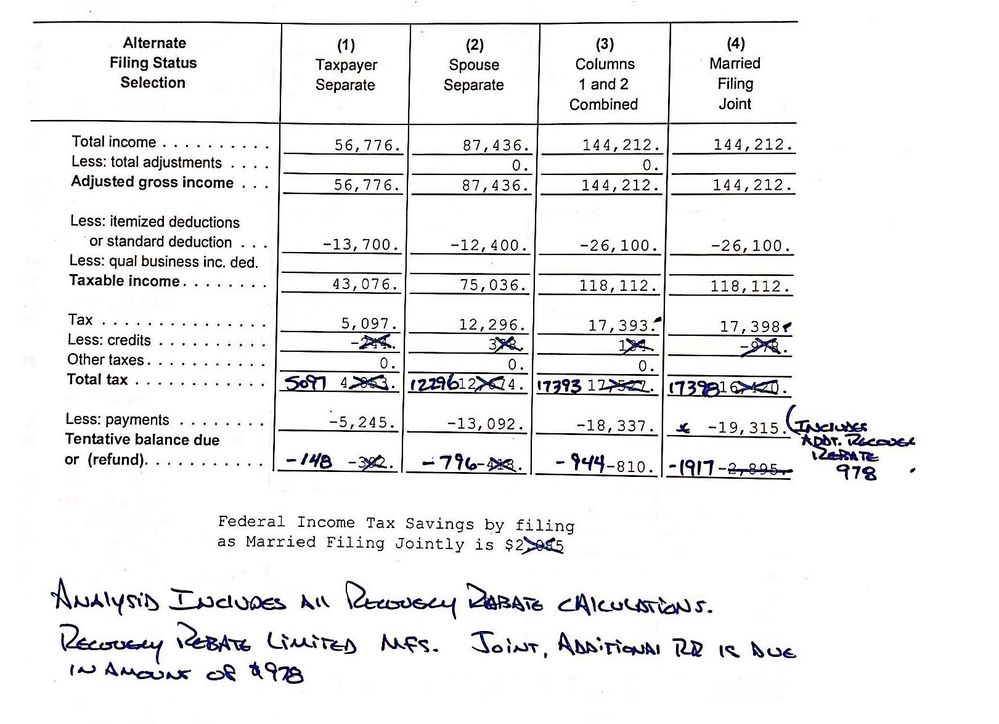 Alternate Filing Status Selection (1) Taxpayer Separate (2) Spouse Separate (3) Columns 1 and 2 Combined (4) Married Filing Joint
Total income . . . . . . . . . . 56,776. 87,436. 144,212. 144,212.
Less: total adjustments . . . . 0. 0.
Adjusted gross income . . . 56,776. 87,436. 144,212. 144,212.
Less: itemized deductions
or standard deduction . . . -13,700. -12,400. -26,100. -26,100.
Less: qual business inc. ded.
Taxable income. . . . . . . . 43,076. 75,036. 118,112. 118,112.
Tax . . . . . . . . . . . . . . . 5,097. 12,296. 17,393. 17,398.
Less: credits . . . . . . . . . . -978.
Other taxes. . . . . . . . . . . 0. 0. 0.
Total tax . . . . . . . . . . . . 5097 12296 17393 17398
Less: payments . . . . . . . . -5,245. -13,092. -18,337. * -19,315. (INCLUDES
Tentative balance due ADDT. RECOVERY
or (refund). . . . . . . . . . . -148 -796 -944 -810. -1917 -2,895. REBATE
978
Federal Income Tax Savings by filing
as Married Filing Jointly is $2,085
ANALYSIS INCLUDES All RECOVERY REBATE CALCULATIONS.
RECOVERY REBATE LIMITED MFS. JOINT, ADDITIONAL RR IS DUE
IN AMOUNT OF $978